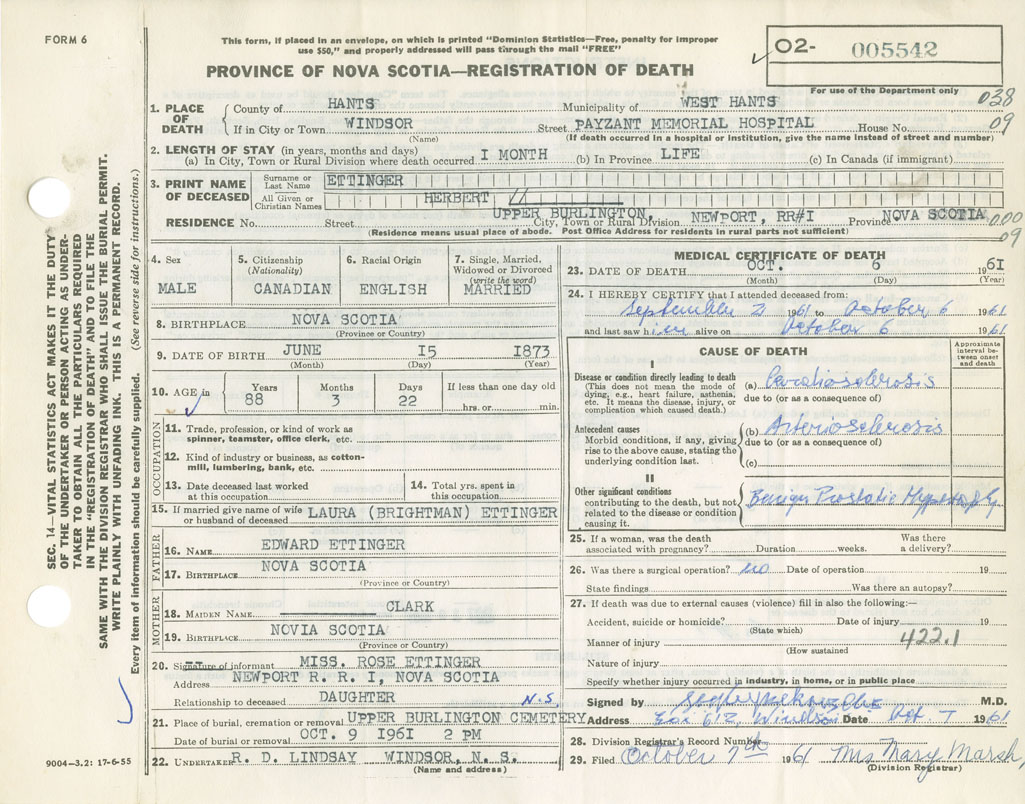 FORM 6
This form, if placed in an envelope, on which is printed "Dominion Statistics—Free, penalty for improper
use $50," and properly addressed will pass through the mail "FREE"
PROVINCE OF NOVA SCOTIA—REGISTRATION OF DEATH
02- 005542
For use of the Department only
038
09
1. PLACE OF DEATH County of HANTS Municipality of WEST HANTS
If in City or Town WINDSOR Street PAYZANT MEMORIAL HOSPITAL House No.
(Name) (If death occurred in a hospital or institution, give the name instead of street and number)
2. LENGTH OF STAY (in years, months and days)
(a) In City, Town or Rural Division where death occurred I MONTH (b) In Province LIFE (c) In Canada (if immigrant)
3. PRINT NAME OF DECEASED Surname or Last Name ETTINGER
All Given or Christian Names HERBERT //
RESIDENCE No. Street UPPER BURLINGTON, City, Town or Rural Division NEWPORT, RR#I Province NOVA SCOTIA 000
09
(Residence means usual place of abode. Post Office Address for residents in rural parts not sufficient)
4. Sex MALE
5. Citizenship (Nationality) CANADIAN
6. Racial Origin ENGLISH
7. Single, Married, Widowed or Divorced (write the word) MARRIED
8. BIRTHPLACE NOVA SCOTIA
(Province or Country)
9. DATE OF BIRTH JUNE I5 I873
(Month) (Day) (Year)
10. AGE in Years 88 Months 3 Days 22 If less than one day old hrs. or min.
OCCUPATION
11. Trade, profession, or kind of work as
spinner, teamster, office clerk, etc.
12. Kind of industry or business, as cotton-
mill, lumbering, bank, etc.
13. Date deceased last worked at this occupation 14. Total yrs. spent in this occupation
15. If married give name of wife or husband of deceased LAURA (BRIGHTMAN) ETTINGER
FATHER
16. NAME EDWARD ETTINGER
17. BIRTHPLACE NOVA SCOTIA
(Province or Country)
MOTHER
18. MAIDEN NAME CLARK
19. BIRTHPLACE NOVIA SCOTIA
(Province or Country)
20. Signature of informant MISS. ROSE ETTINGER
Address NEWPORT R. R. I, NOVA SCOTIA
Relationship to deceased DAUGHTER N.S.
21. Place of burial, cremation or removal UPPER BURLINGTON CEMETERY
Date of burial or removal OCT. 9 I96I 2 PM
22. UNDERTAKER R. D. LINDSAY WINDSOR, N. S.
(Name and address)
MEDICAL CERTIFICATE OF DEATH
23. DATE OF DEATH OCT. 6 196I
(Month) (Day) (Year)
24. I HEREBY CERTIFY that I attended deceased from:
September 2 1961 to October 6 1961
and last saw him alive on October 6 1961
CAUSE OF DEATH
Approximate interval between onset and death
I
Disease or condition directly leading to death
(This does not mean the mode of
dying, e.g., heart failure, asthenia,
etc. It means the disease, injury, or
complication which caused death.)
(a) Cardiosclerosis
due to (or as a consequence of)
Antecedent causes
Morbid conditions, if any, giving
rise to the above cause, stating the
underlying condition last.
(b) Arteriosclerosis
due to (or as a consequence of)
(c)
II
Other significant conditions
contributing to the death, but not
related to the disease or condition
causing it.
Benign Prostatic Hypertrophy
25. If a woman, was the death associated with pregnancy? Duration weeks. Was there a delivery?
26. Was there a surgical operation? no Date of operation 19
State findings Was there an autopsy?
27. If death was due to external causes (violence) fill in also the following:—
Accident, suicide or homicide? Date of injury 19
(State which)
Manner of injury 422.1
(How sustained
Nature of injury
Specify whether injury occurred in industry, in home, or in public place
Signed by M.D.
Address Box 612, Windsor Date Oct. 7 1961
28. Division Registrar's Record Number
29. Filed October 7th 1961 Mrs Mary Marsh,
(Division Registrar)
SEC. 14—VITAL STATISTICS ACT MAKES IT THE DUTY
OF THE UNDERTAKER OR PERSON ACTING AS UNDER-
TAKER TO OBTAIN ALL THE PARTICULARS REQUIRED
IN THE "REGISTRATION OF DEATH" AND TO FILE THE
SAME WITH THE DIVISION REGISTRAR WHO SHALL ISSUE THE BURIAL PERMIT.
WRITE PLAINLY WITH UNFADING INK. THIS IS A PERMANENT RECORD.
Every item of information should be carefully supplied. (See reverse side for instructions.)
9004—3.2: 17-6-55